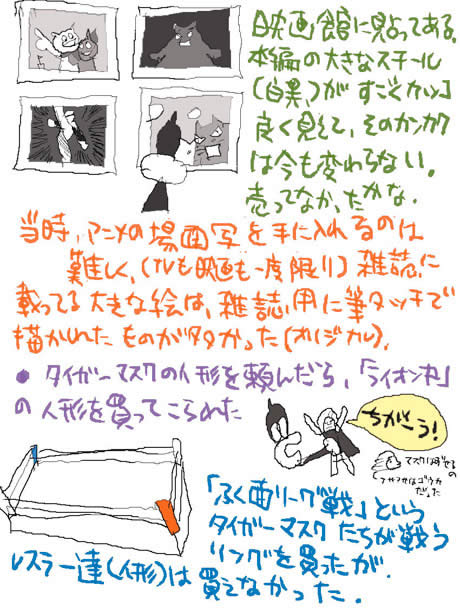 映画館に貼ってある、
本編の大きなスチール
(白黒)がすごくカッコ
良く見えて、そのカンカク
は今も変わらない。
売ってなかったかな.
当時、アニメの場面写を手に入れるのは
難しく、(TVも映画も一度限り)雑誌に
載ってる大きな絵は、雑誌用に筆タッチで
描かれたものが多かった(オリジナル).
●タイガーマスクの人形を頼んだら、「ライオン丸」
の人形を買ってこられた
ちがう!
マスクはぼせるの
「ふく面リーグ戦」という
タイガーマスクたちが戦う
リングを買ったが.
レスラー達(人形)は買えなかった.